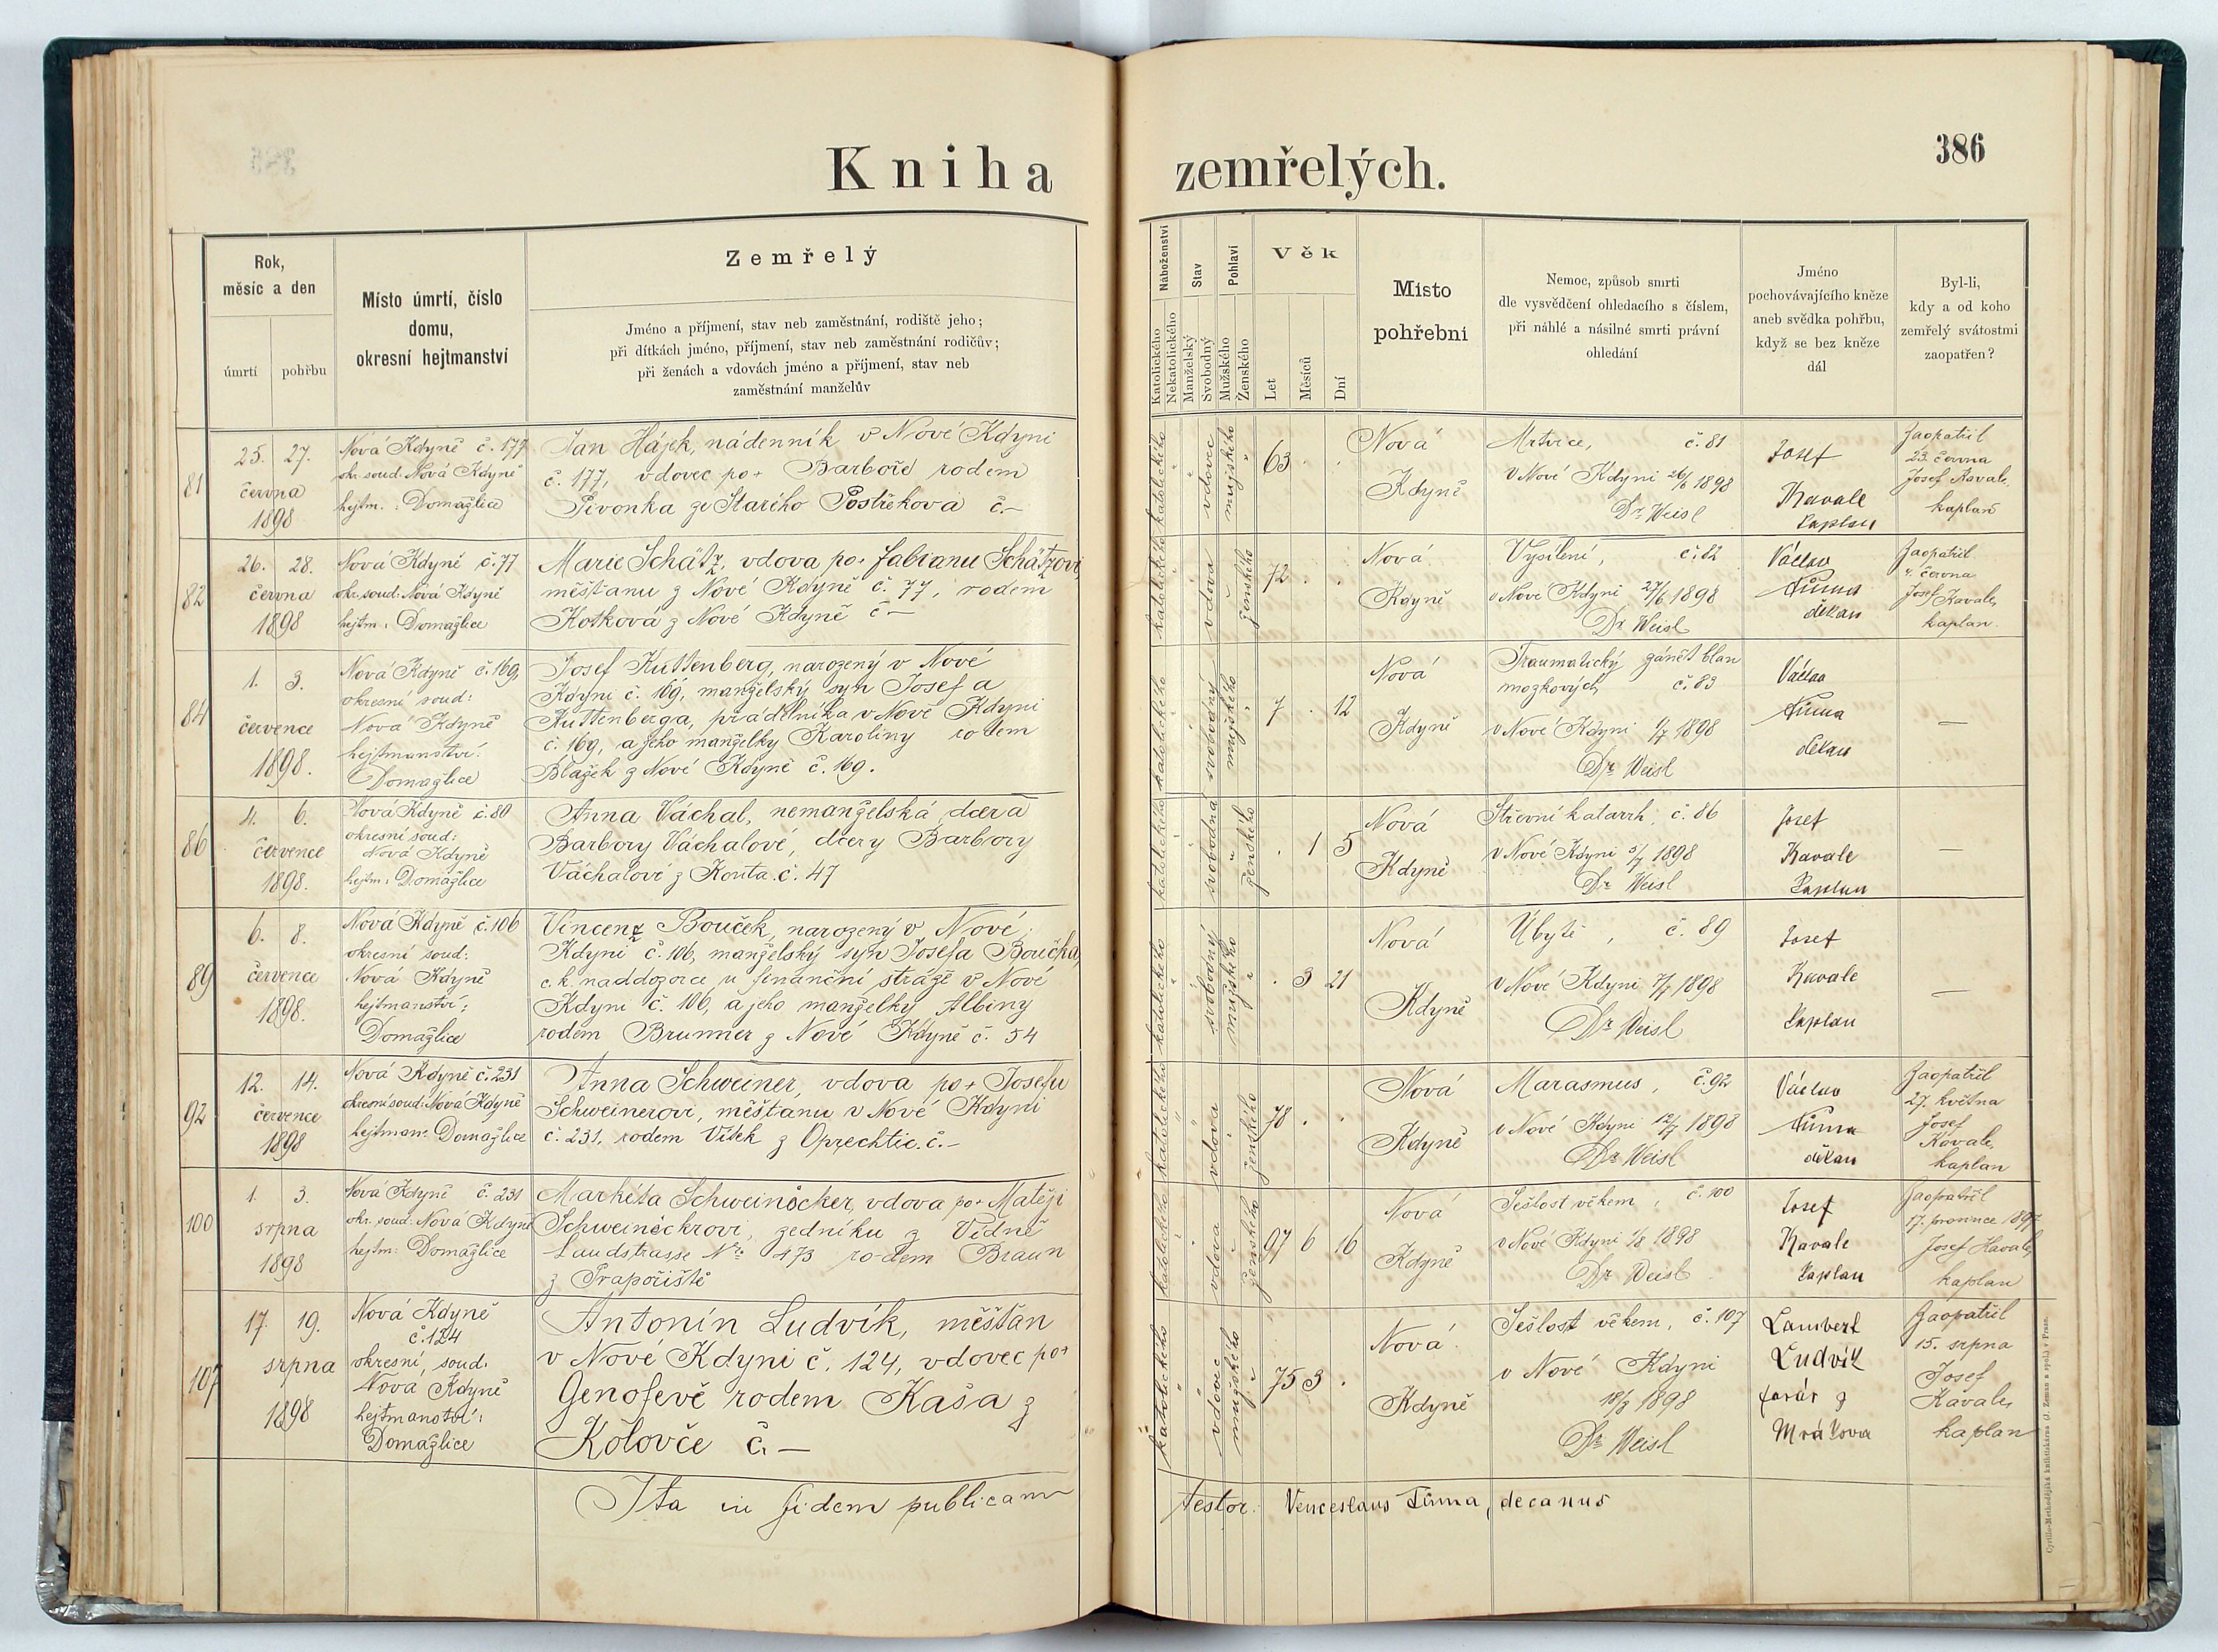 Kniha zemřelých.
386
Rok,
měsíc a den
úmrtí
pohřbu
Místo úmrtí, číslo
domu,
okresní hejtmanství
Zemřelý
Jméno a příjmení, stav neb zaměstnání, rodiště jeho;
při dítkách jméno, příjmení, stav neb zaměstnání rodičův;
při ženách a vdovách jméno a příjmení, stav neb
zaměstnání manželův
Náboženství
Katolického
Nekatolického
Stav
Manželský
Svobodný
Pohlaví
Mužského
Ženského
Věk
Let
Měsíců
Dní
Místo
pohřební
Nemoc, způsob smrti
dle vysvědčení ohledacího s číslem,
při náhlé a násilné smrti právní
ohledání
Jméno
pochovávajícího kněze
aneb svědka pohřbu,
když se bez kněze
dál
Byl-li,
kdy a od koho
zemřelý svátostmi
zaopatřen?
81
25. 27.
června
1898
Nová Kdyně č. 177
okr. soud: Nová Kdyně
hejtm.: Domažlice
Jan Hájek, nádenník v Nové Kdyni
č. 177, vdovec po + Barboře rodem
Pivonka ze Starého Postřekova č.–
katolického
vdovec
mužského
63 . .
Nová
Kdyně
Mrtvice, č. 81
v Nové Kdyni 26/6 1898
Dr Weisl
Josef
Kavale
kaplan
Zaopatřil
23. června
Josef Kavale,
kaplan
82
26. 28.
června
1898
Nová Kdyně č. 77
okr. soud: Nová Kdyně
hejtm: Domažlice
Marie Schätz, vdova po + Fabianu Schätzovi
měšťanu z Nové Kdyně č. 77, rodem
Kotková z Nové Kdyně č –
katolického
vdova
ženského
72 . .
Nová
Kdyně
Vysílení, č. 82
v Nové Kdyni 27/6 1898
Dr Weisl
Václav
Tůma
děkan
Zaopatřil
4. června
Josef Kavale,
kaplan.
84
1. 3.
července
1898.
Nová Kdyně č. 169,
okresní soud:
Nová Kdyně
hejtmanství:
Domažlice
Josef Kuttenberg, narozený v Nové
Kdyni č. 169, manželský syn Josefa
Kuttenberga, prádelníka v Nové Kdyni
č. 169, a jeho manželky Karoliny rodem
Blažek z Nové Kdyně č. 169.
katolického
svobodný
mužského
7 . 12
Nová
Kdyně
Traumatický zánět blan
mozkových č. 83
v Nové Kdyni 1/7 1898
Dr Weisl
Václav
Tůma
děkan
—
86
4. 6.
července
1898.
Nová Kdyně č. 80
okresní soud:
Nová Kdyně
hejtm: Domažlice
Anna Váchal, nemanželská dcera
Barbory Váchalové, dcery Barbory
Váchalové z Kouta č. 47
katolického
svobodná
ženského
. 1 5
Nová
Kdyně
Střevní katarrh, č. 86
v Nové Kdyni 5/7 1898
Dr Weisl
Josef
Kavale
kaplan
—
89
6. 8.
července
1898.
Nová Kdyně č. 106
okresní soud:
Nová Kdyně
hejtmanství:
Domažlice
Vincenz Bouček, narozený v Nové
Kdyni č. 106, manželský syn Josefa Boučka,
c. k. naddozorce u finanční stráže v Nové
Kdyni č. 106, a jeho manželky Albiny
rodem Brunner z Nové Kdyně č. 54
katolického
svobodný
mužského
. 3 21
Nová
Kdyně
Úbytě, č. 89
v Nové Kdyni 7/7 1898
Dr Weisl
Josef
Kavale
kaplan
—
92
12. 14.
července
1898
Nová Kdyně č. 231
okresní soud: Nová Kdyně
hejtman: Domažlice
Anna Schweiner, vdova po + Josefu
Schweinerovi, měšťanu v Nové Kdyni
č. 231, rodem Vítek z Oprechtic. č.–
katolického
vdova
ženského
78 . .
Nová
Kdyně
Marasmus, č. 92
v Nové Kdyni 12/7 1898
Dr Weisl
Václav
Tůma
děkan
Zaopatřil
27. května
Josef
Kavale,
kaplan
100
1. 3.
srpna
1898
Nová Kdyně č. 231
okr. soud: Nová Kdyně
hejtm: Domažlice
Markéta Schweinöcker, vdova po + Matěji
Schweinöckrovi, zedníku z Vídně
Landstrasse Nro 473 rodem Braun
z Prapořiště
katolického
vdova
ženského
97 6 16
Nová
Kdyně
Sešlost věkem, č. 100
v Nové Kdyni 1/8 1898
Dr Weisl
Josef
Kavale
kaplan
Zaopatřil
17. prosince 1897
Josef Kavale,
kaplan
107
17. 19.
srpna
1898
Nová Kdyně
č. 124
okresní soud:
Nová Kdyně
hejtmanství:
Domažlice
Antonín Ludvík, měšťan
v Nové Kdyni č. 124, vdovec po +
Genofevě rodem Kaša z
Kolovče č. –
katolického
vdovec
mužského
75 3 .
Nová
Kdyně
Sešlost věkem, č. 107
v Nové Kdyni
18/8 1898
Dr Weisl
Lambert
Ludvík
farář z
Mrákova
Zaopatřil
15. srpna
Josef
Kavale,
kaplan
Ita in fidem publicam
testor. Venceslaus Tůma, decanus
Cyrillo-Methodějská knihtiskárna (J. Zeman a spol.) v Praze.